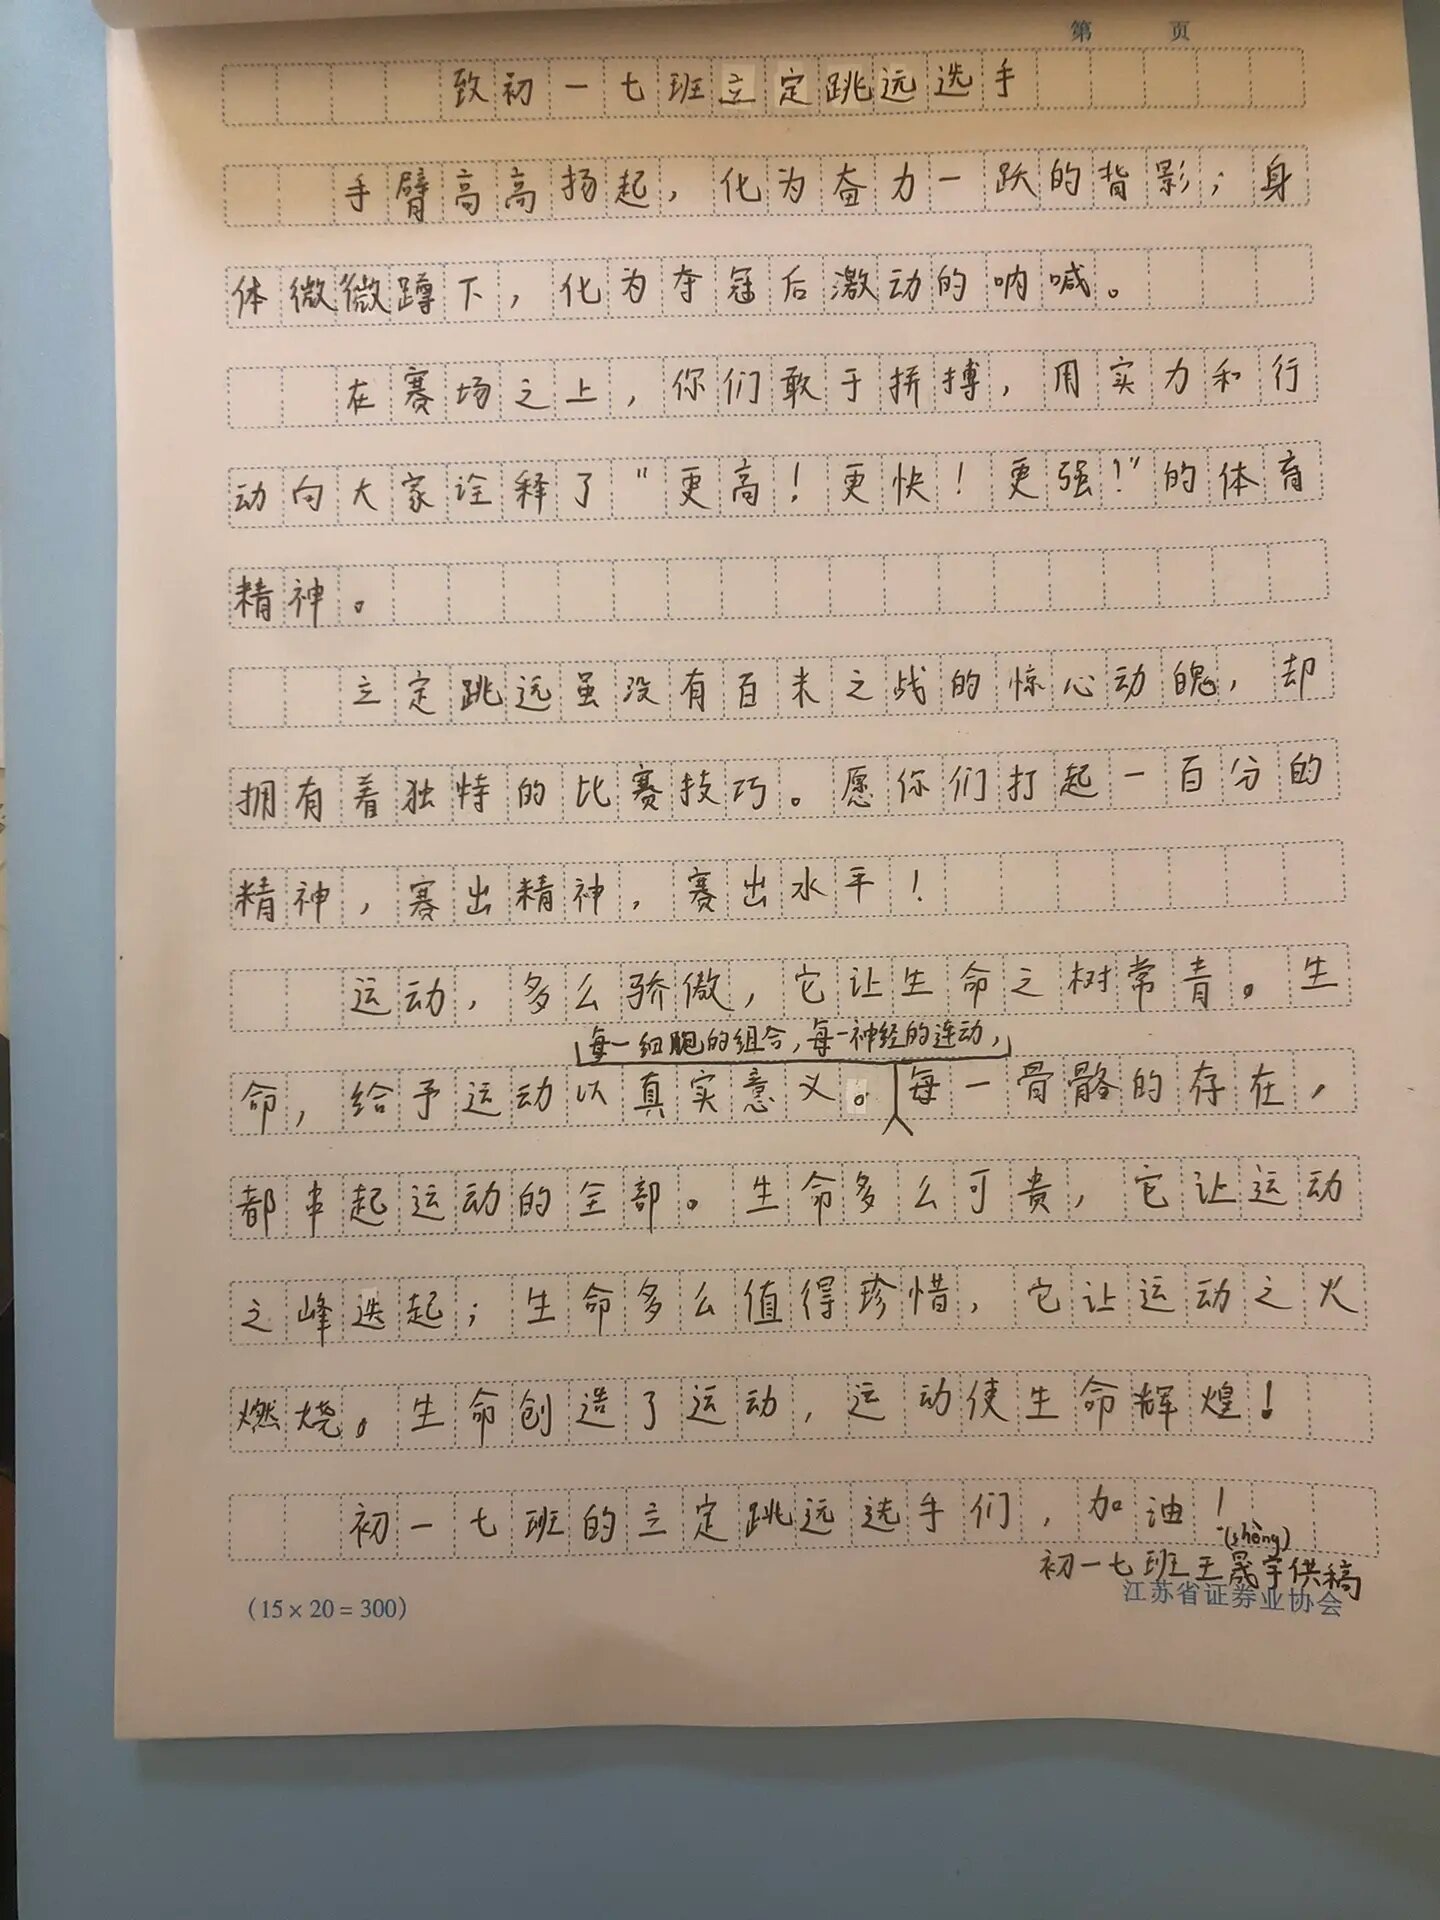 第 页
致初一七班立定跳远选手
手臂高高扬起，化为奋力一跃的背影；身
体微微蹲下，化为夺冠后激动的呐喊。
在赛场之上，你们敢于拼搏，用实力和行
动向大家诠释了“更高！更快！更强！”的体育
精神。
立定跳远虽没有百米之战的惊心动魄，却
拥有着独特的比赛技巧。愿你们打起一百分的
精神，赛出精神，赛出水平！
运动，多么骄傲，它让生命之树常青。生
每一细胞的组合，每一神经的连动，
命，给予运动以真实意义。每一骨骼的存在，
都串起运动的全部。生命多么可贵，它让运动
之峰迭起；生命多么值得珍惜，它让运动之火
燃烧。生命创造了运动，运动使生命辉煌！
初一七班的立定跳远选手们，加油！
(shèng)
初一七班王晟宇供稿
(15×20=300)
江苏省证券业协会